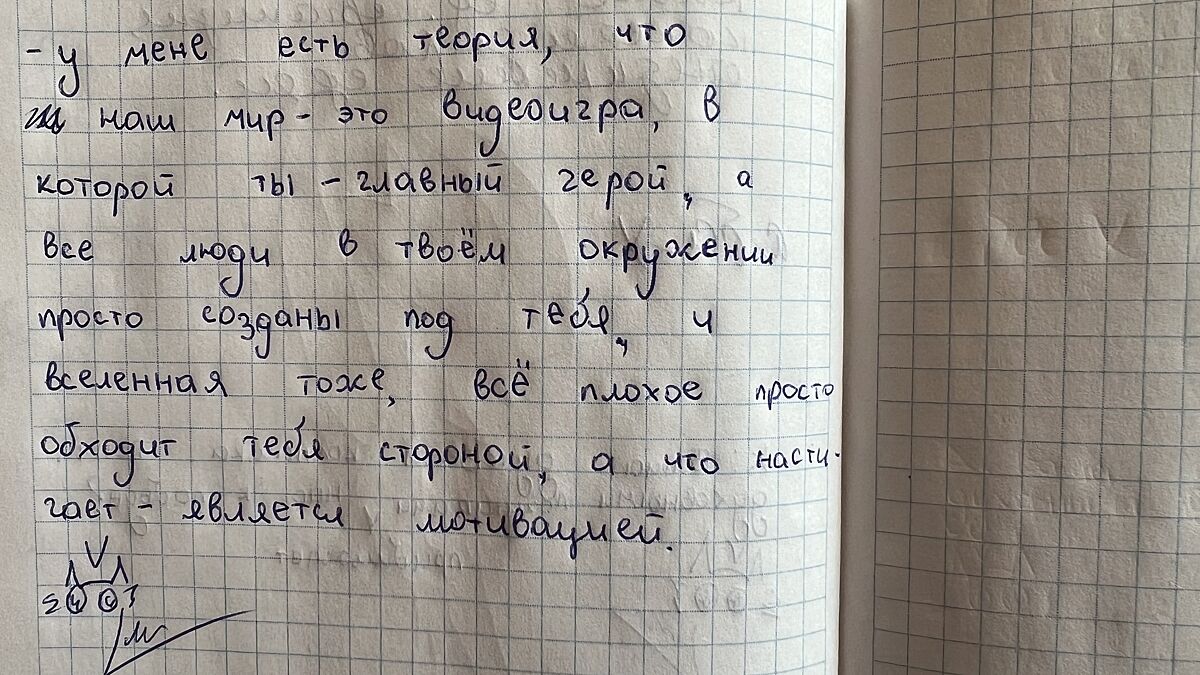 - у мене есть теория, что
наш мир - это видеоигра, в
которой ты - главный герой, а
все люди в твоём окружении
просто созданы под тебя, и
вселенная тоже, всё плохое просто
обходит тебя стороной, а что насти-
гает - является мотивацией.